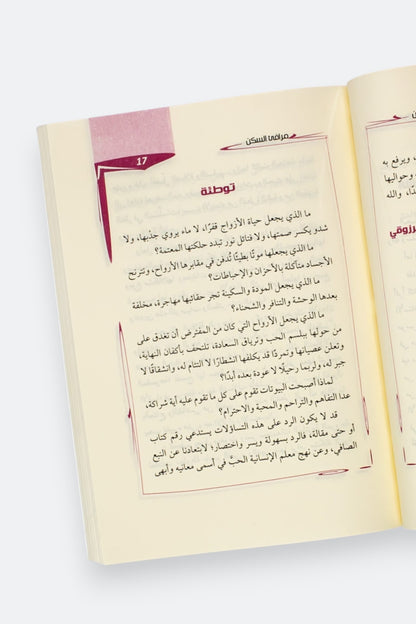 مرافئ السكن
17
توطئة
ما الذي يجعل حياة الأزواج قفرًا، لا ماء يروي جذبها، ولا
شدو يكسر صمتها، ولا فتائل نور تبدد حلكتها المعتمة؟
ما الذي يجعلها موتًا بطيئًا تُدفن في مقابرها الأرواح، وتترنح
الأجساد متآكلة بالأحزان والإحباطات؟
ما الذي يجعل المودة والسكينة تجر حقائبها مهاجرة، مخلفة
بعدها الوحشة والتنافر والشحناء؟
ما الذي يجعل الأرواح التي كان من المفترض أن تغدق على
من حولها ببلسم الحب وترياق السعادة، تلتحف بأكفان النهاية،
وتعلن عصيانها وتمردًا قد يكلفها انشطارًا لا التئام له، وانشقاقًا لا
جبر له، ولربما رحيلًا لا عودة بعده أبدًا؟
لماذا أصبحت البيوتات تقوم على كل ما تقوم عليه أية شراكة،
عدا التفاهم والتراحم والمحبة والاحترام؟
قد لا يكون الرد على هذه التساؤلات يستدعي رقم كتاب
أو حتى مقالة، فالرد بسهولة ويسر واختصار؛ لابتعادنا عن النبع
الصافي، وعن نهج معلم الإنسانية الحبَّ في أسمى معانيه وأبهى
، ويرفع به
، وحواليها
والله